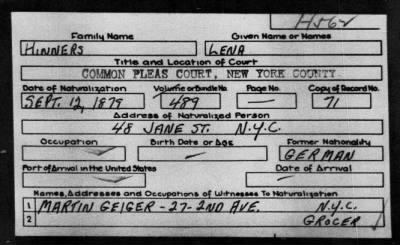 H562
Family Name Given Name or Names
HINNERS LENA
Title and Location of Court
COMMON PLEAS COURT, NEW YORK COUNTY
Date of Naturalization Volume or Bundle No. Page No. Copy of Record No.
SEPT. 12, 1879 489 — 71
Address of Naturalized Person
48 JANE ST. N.Y.C.
Occupation Birth Date or Age Former Nationality
GERMAN
Port of Arrival in the United States Date of Arrival
Names, Addresses and Occupations of Witnesses To Naturalization
1 MARTIN GEIGER - 27-2ND AVE. N.Y.C.
2 GROCER